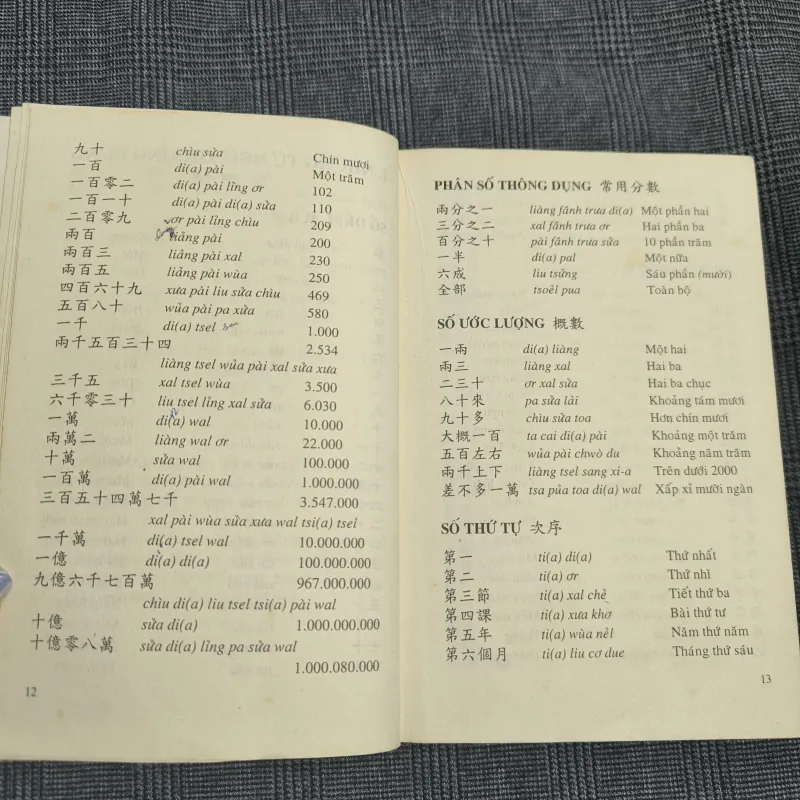 九十 chìu sửa Chín mươi
一百 di(a) pài Một trăm
一百零二 di(a) pài lỉng ơr 102
一百一十 di(a) pài di(a) sửa 110
二百零九 ơr pài lỉng chìu 209
兩百 liảng pài 200
兩百三 liảng pài xal 230
兩百五 liảng pài wùa 250
四百六十九 xưa pài liu sửa chìu 469
五百八十 wủa pài pa xửa 580
一千 di(a) tsel 1.000
兩千五百三十四 2.534
liàng tsel wủa pài xal sửa xưa
三千五 xal tsel wùa 3.500
六千零三十 liu tsel lỉng xal sửa 6.030
一萬 di(a) wal 10.000
兩萬二 liàng wal ơr 22.000
十萬 sửa wal 100.000
一百萬 di(a) pài wal 1.000.000
三百五十四萬七千 3.547.000
xal pài wùa sửa xưa wal tsi(a) tsel
一千萬 di(a) tsel wal 10.000.000
一億 di(a) di(a) 100.000.000
九億六千七百萬 967.000.000
chìu di(a) liu tsel tsi(a) pài wal
十億 sửa di(a) 1.000.000.000
十億零八萬 sửa di(a) lỉng pa sửa wal
1.000.080.000
12
PHÂN SỐ THÔNG DỤNG 常用分數
兩分之一 liàng fânh trưa di(a) Một phần hai
三分之二 xal fânh trưa ơr Hai phần ba
百分之十 pài fânh trưa sửa 10 phần trăm
一半 di(a) pal Một nữa
六成 liu tsửng Sáu phần (mười)
全部 tsoẻl pua Toàn bộ
SỐ ƯỚC LƯỢNG 概數
一兩 di(a) liàng Một hai
兩三 liàng xal Hai ba
二三十 ơr xal sửa Hai ba chục
八十來 pa sửa lải Khoảng tám mươi
九十多 chìu sửa toa Hơn chín mươi
大概一百 ta cai di(a) pài Khoảng một trăm
五百左右 wủa pài chwò du Khoảng năm trăm
兩千上下 liàng tsel sang xi-a Trên dưới 2000
差不多一萬 tsa pủa toa di(a) wal Xấp xỉ mười ngàn
SỐ THỨ TỰ 次序
第一 ti(a) di(a) Thứ nhất
第二 ti(a) ơr Thứ nhì
第三節 ti(a) xal chẻ Tiết thứ ba
第四課 ti(a) xưa khơ Bài thứ tư
第五年 ti(a) wùa nẻl Năm thứ năm
第六個月 ti(a) liu cơ due Tháng thứ sáu
13